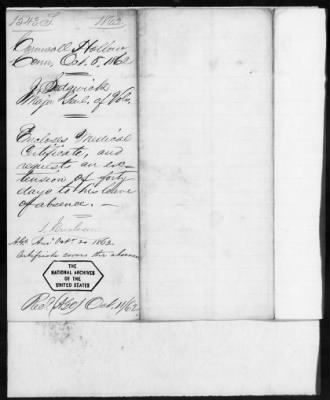 1242 S. 1862
Cornwall Hollow
Conn, Oct. 8, 1862
J. Sedgwick
Major Genl. of Vols.
Encloses Medical
Certificate, and
requests an ex-
tension of forty
days to his leave
of absence. —
1 Enclosure
Oct 20 1862
Certificate covers the absence
THE
NATIONAL ARCHIVES
OF THE
UNITED STATES
Recd (AGO) Oct. 11/62